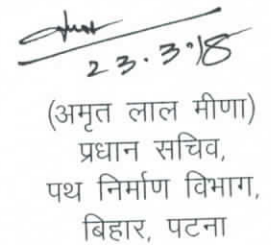 23.3.18
(अमृत लाल मीणा)
प्रधान सचिव,
पथ निर्माण विभाग,
बिहार, पटना